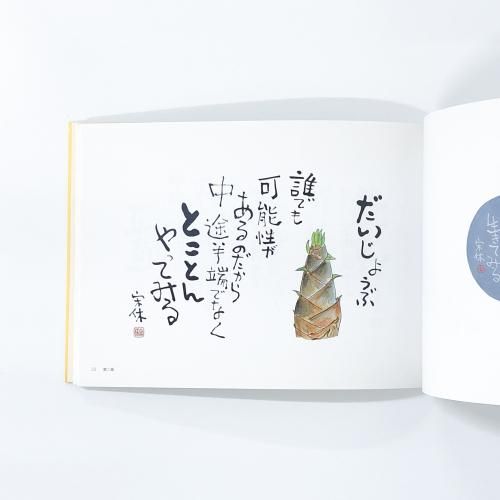 だいじょうぶ
誰でも
可能性が
あるのだから
中途半端でなく
とことん
やってみる
宗休
生きてみる
宗休